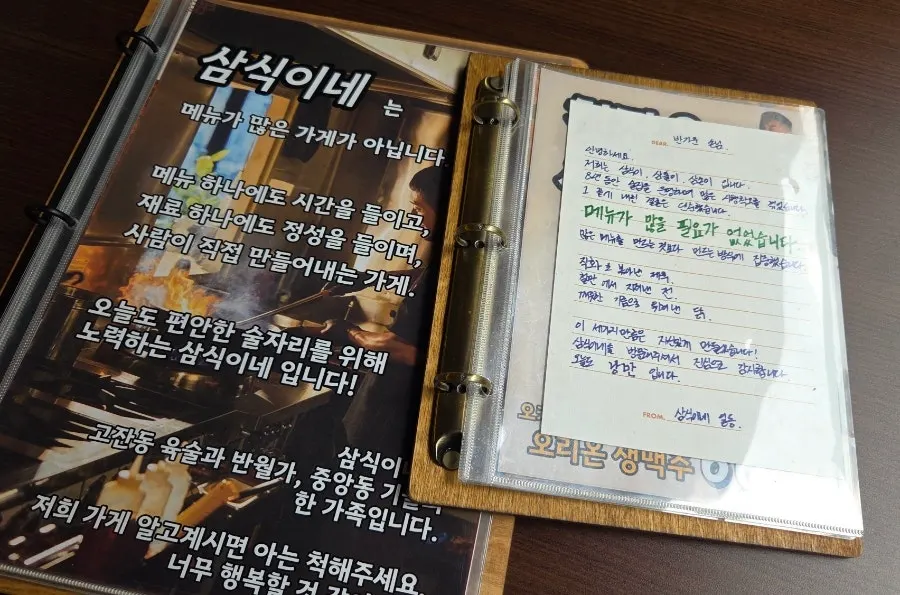 삼식이네 는
메뉴가 많은 가게가 아닙니다.
메뉴 하나에도 시간을 들이고,
재료 하나에도 정성을 들이며,
사람이 직접 만들어내는 가게.
오늘도 편안한 술자리를 위해
노력하는 삼식이네 입니다!
삼식이
고잔동 육술과 반월가, 중앙동 기
한 가족입니다.
저희 가게 알고계시면 아는 척해주세요.
너무 행복할 것
DEAR. 반가운 손님.
안녕하세요.
저희는 삼식이, 삼돌이, 삼순이 입니다.
8년 동안 술집을 운영하며 많은
그 끝에 내린 결론은 단순했습니다.
메뉴가 많을 필요가 없었습니다.
많은 메뉴를 만드는 것보다 만드는 방식에 집중했습니다.
직화로 볶아낸 제육
철판에서 지져낸 전.
깨끗한 기름으로 튀겨낸 닭.
이 세가지만큼은 자신있게 만들었습니다!
삼식이네를 방문해주셔서 진심으로 감사합니다.
오늘도 낭만 입니다.
FROM. 삼식이네 일동.
오리온 생맥주